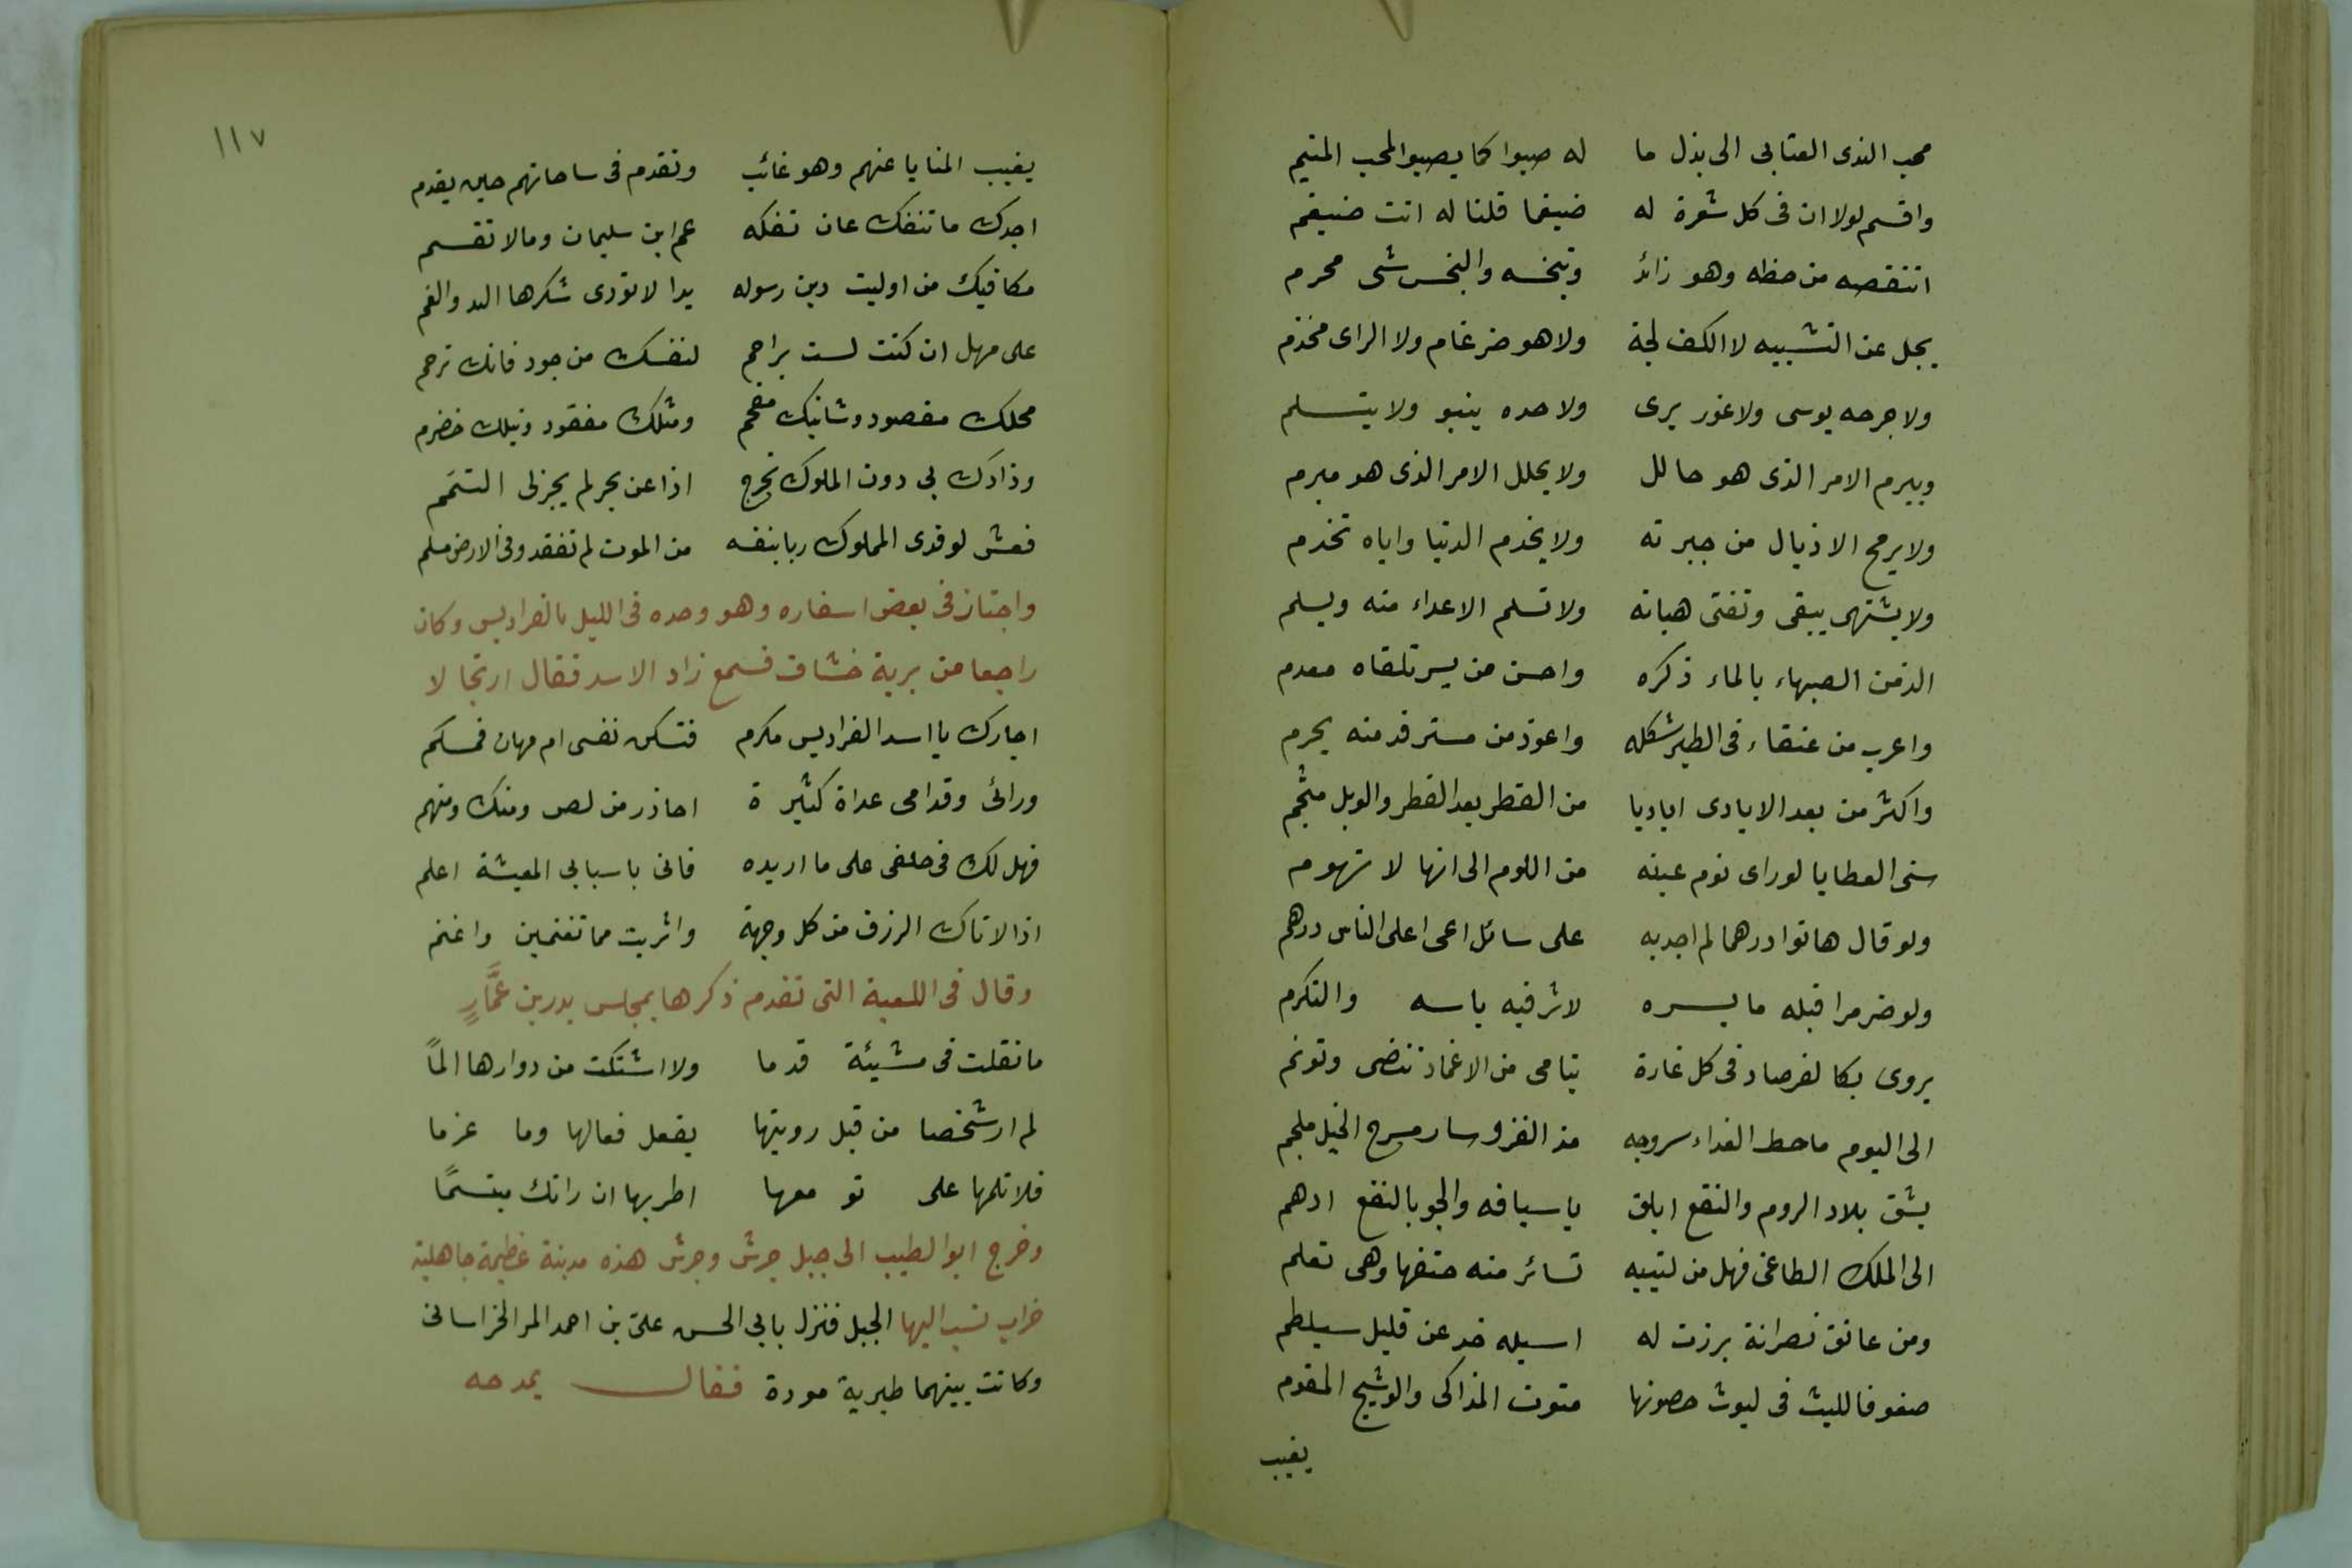 محب الندى العتابى الى بذل ما له صبوا كما يصبوا لمحب المتيم
واقسم لولا ان فى كل شعرة له ضيغما قلنا له انت ضيغم
اتنقصه من حظه وهو زائد وتبخسه والبخس شى محرم
يجل عن التشبيه لا الكف لجة ولا هو ضرغام ولا الراى مخذم
ولا جرحه يوسى ولا غور يرى ولا حده ينبو ولا يتسلم
ويبرم الامر الذى هو حالل ولا يحلل الامر الذى هو مبرم
ولا يرمح الاذيال من جبرته ولا يخدم الدنيا واياه تخدم
ولا يشتهى يبقى وتفنى هباته ولا تسلم الاعداء منه ويسلم
الذ من الصهباء بالماء ذكره واحسن من يسر تلقاه معدم
واغرب من عنقاء فى الطير شكله واعوذ من مسترفد منه يحرم
واكثر من بعد الايادى اياديا من القطر بعد القطر والوبل مثجم
سنى العطايا لو راى نوم عينه من اللوم الى انها لا تهوم
ولو قال هاتوا درهما لم اجد به على سائل اعى اعلى الناس درهم
ولو ضر مرا قبله ما يسره لاثر فيه باسه والتكرم
يروى بكا لفرصاد فى كل غارة يتامى من الاغماد تنضى وتوتم
الى اليوم ماحط الفداء سروجه مذ الغزو سار مسرج الخيل ملجم
يشق بلاد الروم والنقع ابلق باسيافه والجو بالنقع ادهم
الى الملك الطاغى فهل من كتيبه تسائر منه حتفها وهى تعلم
ومن عاتق نصرانة برزت له اسيله خد عن قليل سيلطم
صفوفا لليث فى ليوث حصونها متون المذاكى والوشيج المقوم
يغيب
١١٧
يغيب المنايا عنهم وهو غائب وتقدم فى ساحاتهم حين يقدم
اجدك ما تنفك عان تفكه عم ابن سليمان ومالا تقسم
مكافيك من اوليت دين رسوله يدا لا تودى شكرها اليد والفم
على مهل ان كنت لست براحم لنفسك من جود فانك ترحم
محلك مقصود وشانيك مفحم ومثلك مفقود ونيلك خضرم
وزادك بى دون الملوك تحرج اذا عن بحر لم يجز لى التيمم
فعش لو فدى المملوك ربا بنفسه من الموت لم تفقد وفى الارض مسلم
واجتاز فى بعض اسفاره وهو وحده فى الليل بالفراديس وكان
راجعا من برية خشاف فسمع زار الاسد فقال ارتجالا
اجارك يا اسد الفراديس مكرم فتسكن نفسى ام مهان فمسلم
ورائى وقدامى عداة كثيرة احاذر من لص ومنك ومنهم
فهل لك فى حلفى على ما اريده فانى باسباب المعيشة اعلم
اذا لاتاك الرزق من كل وجهة واثريت مما تغنمين واغنم
وقال فى اللعبة التى تقدم ذكرها بمجلس بدر بن عمَّارٍ
ما نقلت فى مشيئة قدما ولا اشتكت من دوارها الماً
لم ار شخصا من قبل رويتها يفعل فعالها وما عزما
فلا تلمها على تو معها اطربها ان راتك مبتسماً
وخرج ابو الطيب الى جبل جرش وجرش هذه مدينة عظيمة جاهلية
خراب نسب اليها الجبل فنزل بابى الحسن على بن احمد المر الخراسانى
وكانت بينهما طبرية مودة فقال يمدحه